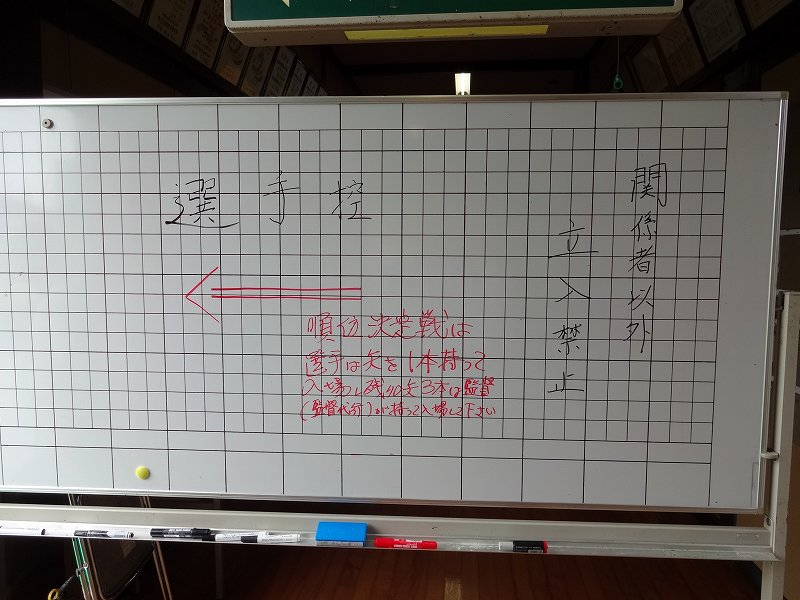 関係者以外
立入禁止
選手控
順位決定戦は
選手は矢を1本持って
入場し残りの矢3本は監督
(監督代行)が持って入場して下さい